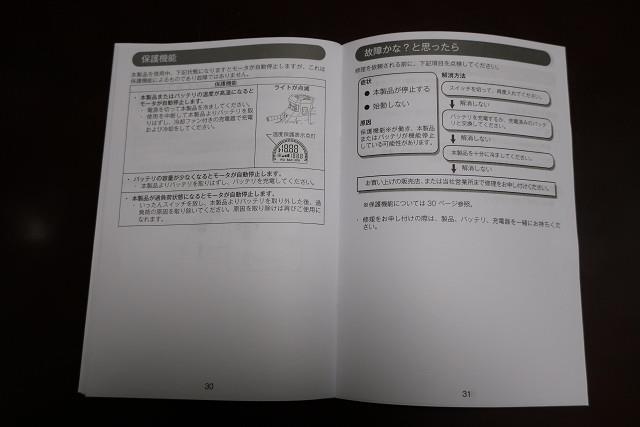 保護機能
本製品を使用中、下記状態になりますとモータが自動停止しますが、これは
保護機能によるものであり故障ではありません。
保護機能
・本製品またはバッテリの温度が高温になると
モータが自動停止します。
・電源を切って本製品を冷ましてください。
・使用を中断して本製品よりバッテリを取
りはずし、冷却ファン付きの充電器で充電
および冷却をしてください。
ライトが点滅
温度保護表示点灯
・バッテリの容量が少なくなるとモータが自動停止します。
・本製品よりバッテリを取りはずし、バッテリを充電してください。
・本製品が過負荷状態になるとモータが自動停止します。
・いったんスイッチを放し、本製品よりバッテリを取り外した後、過
負荷の原因を取り除いてください。原因を取り除けば再びご使用に
なれます。
30
故障かな?と思ったら
修理を依頼される前に、下記項目を点検してください。
症状
● 本製品が停止する
● 始動しない
原因
保護機能※が働き、本製品
またはバッテリが機能停止
している可能性があります。
解消方法
スイッチを切って、再度入れてください。
解消しない
バッテリを充電するか、充電済みのバッテ
リと交換してください。
解消しない
本製品を十分に冷ましてください。
解消しない
お買い上げの販売店、または当社営業所まで修理をお申し付けください。
※保護機能については 30 ページ参照。
・修理をお申し付けの際は、製品、バッテリ、充電器を一緒にお持ちくだ
さい。
31